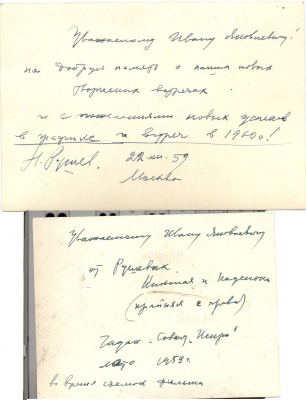 Уважаемому Ивану Яковлевичу!
на добрую память о наших новых
творческих встречах.
и с пожеланиями новых успехов
в графике и встреч в 1960 г!
Н. Рушев, 22.XII.59
Москва
Уважаемому Ивану Яковлевичу
от Рушевых
Николая и Надежды
(крайняя с права)
лето 1959 г.
во время съемок фильма